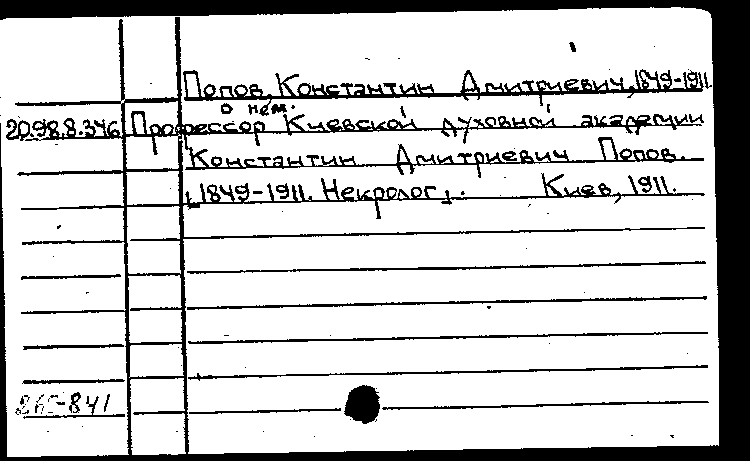 Попов, Константин Дмитриевич, 1849-1911.
о нем.
20.98.8.346 Профессор Киевской духовной академии
Константин Дмитриевич Попов.
[1849-1911. Некролог]. Киев, 1911.